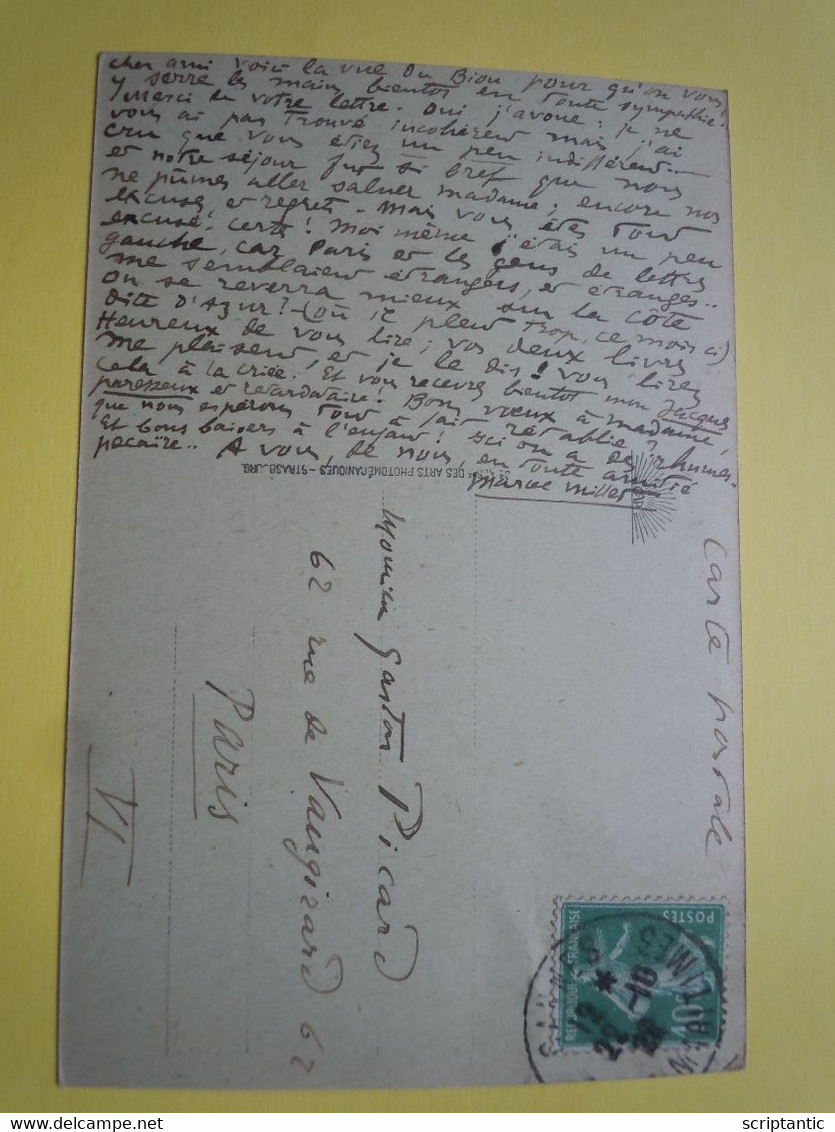 cher ami voici la vue du Biou pour qu'on vous
y serre les mains bientôt en toute sympathie.
Merci de votre lettre. Oui j'avoue : je ne
vous ai pas trouvé incohérent mais j'ai
cru que vous étiez un peu indifférent...
et notre séjour fut si bref que nous
ne pûmes aller saluer madame ; encore nos
excuses et regrets - Mais vous êtes tout
excusé, certs ! Moi même j'étais un peu
gauche, car Paris et les gens de lettres
me semblaient étrangers, et étranges..
On se reverra mieux sur la côte
dite d'Azur ? - (où il pleut trop, ce mois ci)
Heureux de vous lire ; vos deux livres
me plaisent, et je le dis ! vous lirez
cela à la criée. Et vous recevrez bientôt mon Jacques
paresseux et retardataire ! Bons vœux à madame,
que nous espérons tout à fait rétablie ?
Et bons baisers à l'enfant ! Ici on a des rhumes.
pecaïre.. A vous, de nous, en toute amitié
Marcel Millet
DES ARTS PHOTOMÉCANIQUES - STRASBOURG.
Carte postale
Monsieur Gaston Picard
62 rue de Vaugirard 62
Paris
VI
POSTES
REPUBLIQUE FRANÇAISE
10
22 -10
MARITIMES
scriptantic